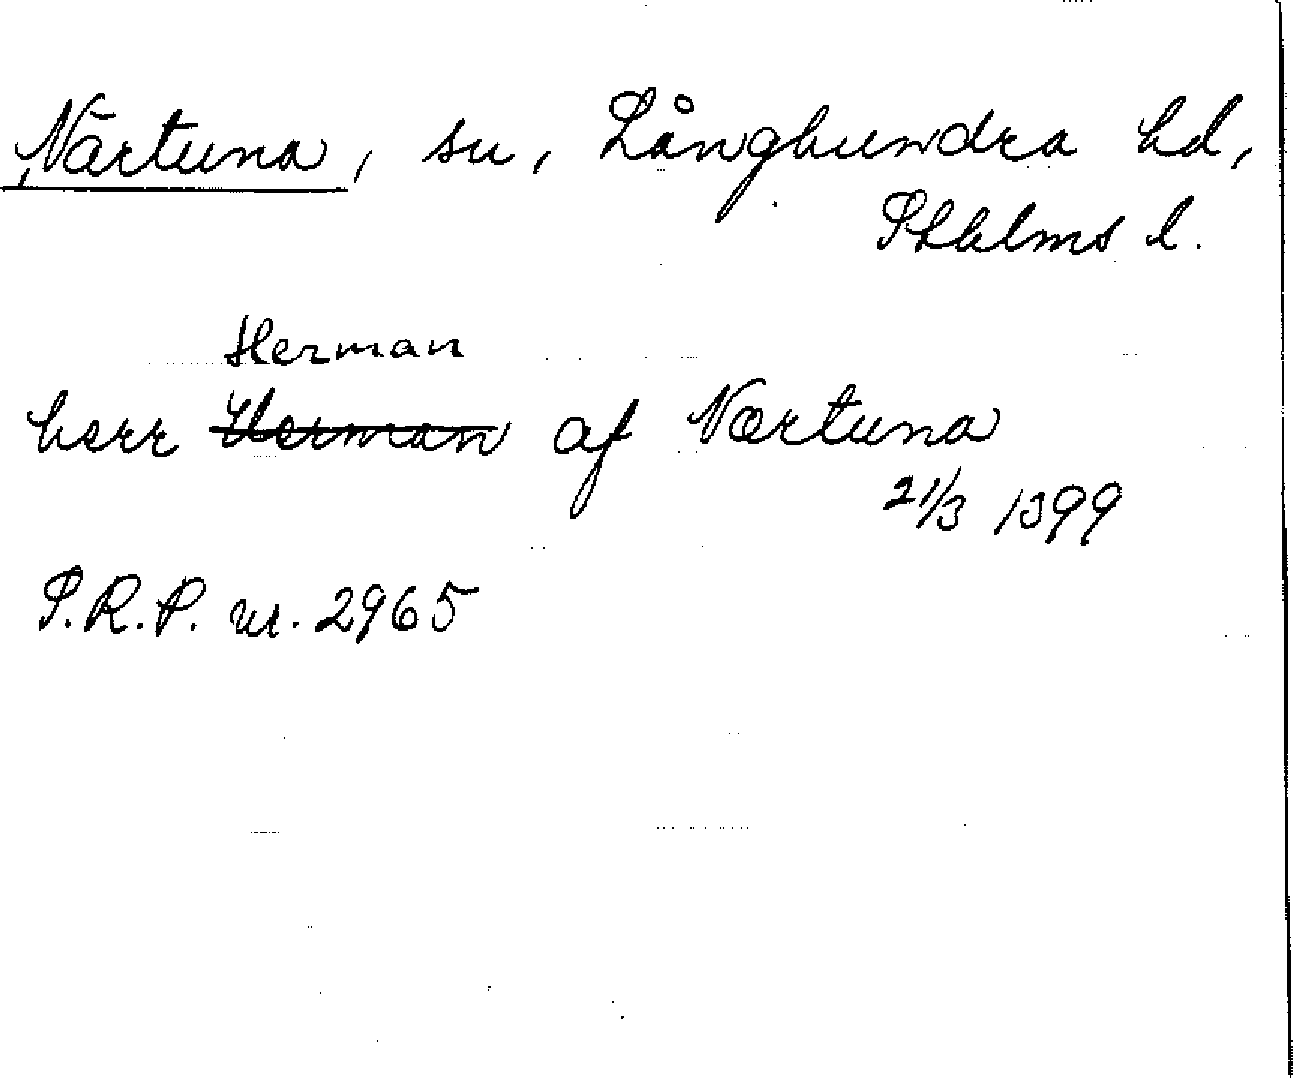 Närtuna, sn, Långhundra hd,
Sthlms l.
Herman
herr Herman af Nærtuna
21/3 1399
S.R.P. nr. 2965